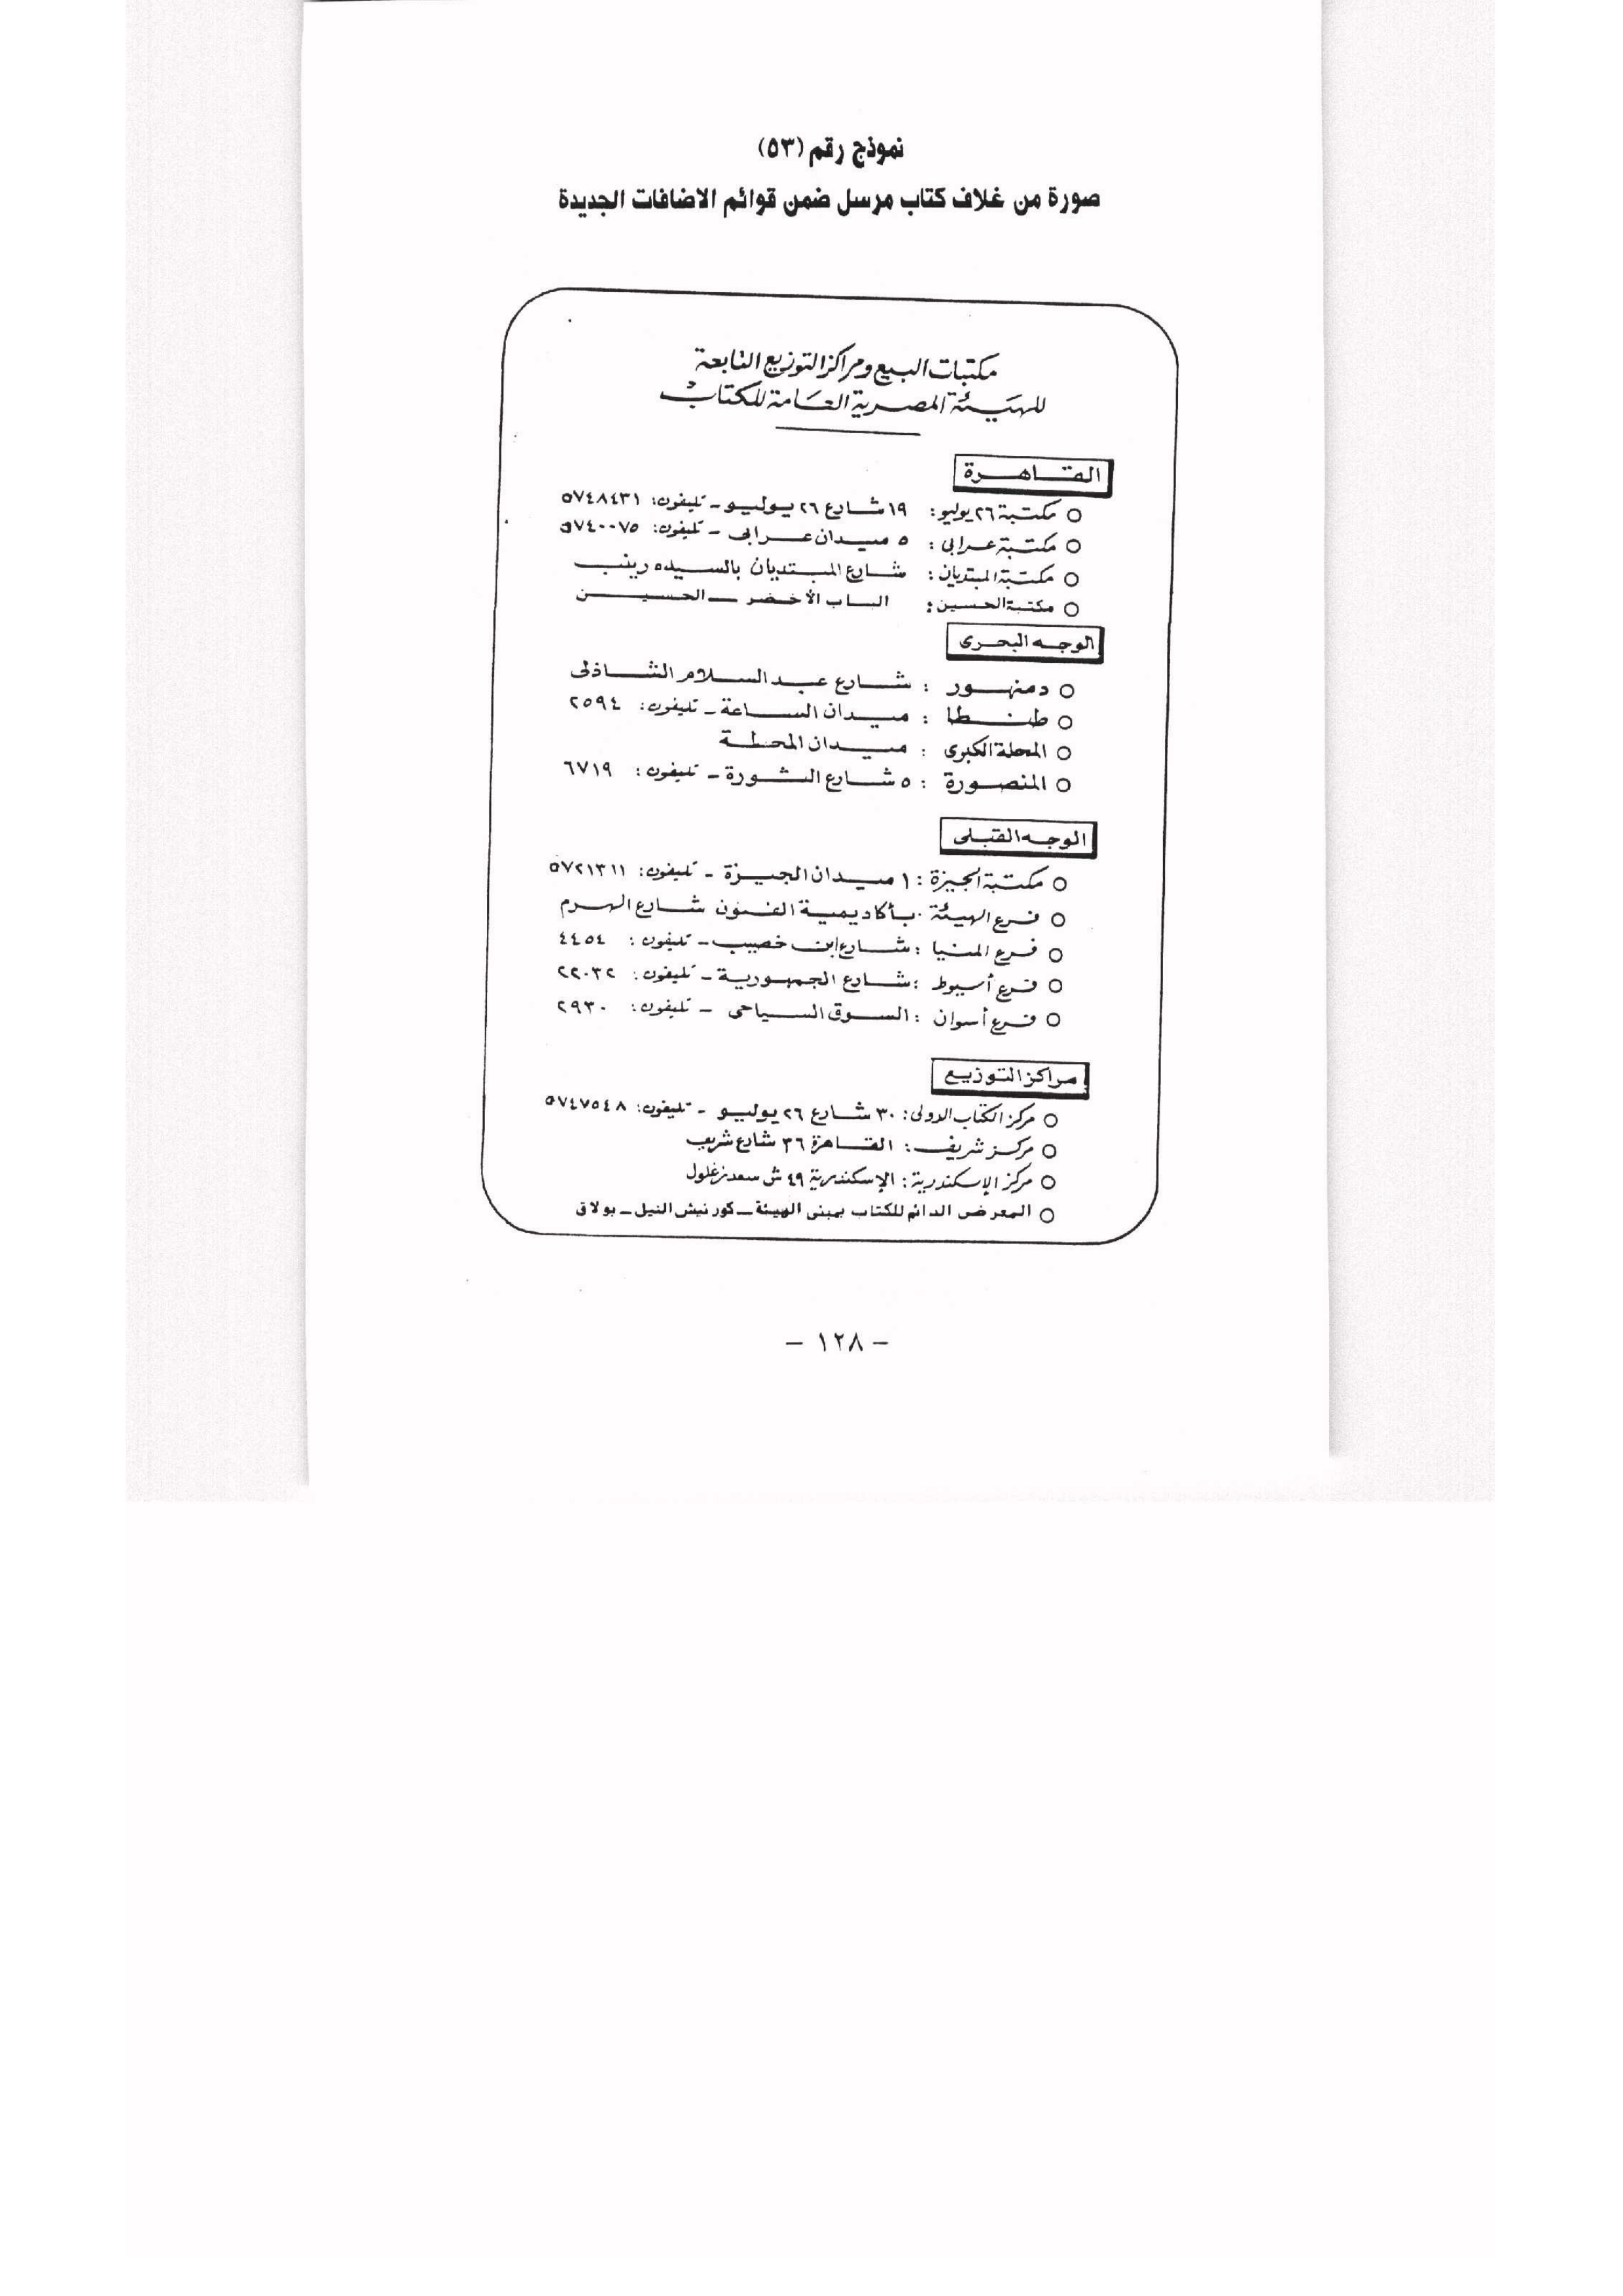 نموذج رقم (٥٣)
صورة من غلاف كتاب مرسل ضمن قوائم الاضافات الجديدة
مكتبات البيع ومراكز التوزيع التابعة
للهيئة المصرية العامة للكتاب
القاهرة
○ مكتبة ٢٦ يوليو: ١٩ شارع ٢٦ يوليو - تليفون: ٥٧٤٨٤٣١
○ مكتبة عرابى : ٥ ميدان عرابى - تليفون: ٥٧٤٠٠٧٥
○ مكتبة المبتديان: شارع المبتديان بالسيده زينب
○ مكتبة الحسين: الباب الأخضر - الحسين
الوجه البحرى
○ دمنهور : شارع عبد السلام الشاذلى
○ طنطا : ميدان الساعة - تليفون: ٢٥٩٤
○ المحلة الكبرى : ميدان المحطة
○ المنصورة : ٥ شارع الثورة - تليفون: ٦٧١٩
الوجه القبلى
○ مكتبة الجيزة : ١ ميدان الجيزة - تليفون: ٥٧٢١٣١١
○ فرع الهيئة بأكاديمية الفنون شارع الهرم
○ فرع المنيا : شارع ابن خصيب - تليفون: ٤٤٥٤
○ فرع أسيوط : شارع الجمهورية - تليفون: ٢٢٠٣٢
○ فرع أسوان : السوق السياحى - تليفون: ٢٩٣٠
مراكز التوزيع
○ مركز الكتاب الدولى: ٣٠ شارع ٢٦ يوليو - تليفون: ٥٧٤٧٥٤٨
○ مركز شريف: القاهرة ٣٦ شارع شريف
○ مركز الإسكندرية : الإسكندرية ٤٩ ش سعد زغلول
○ المعرض الدائم للكتاب بمبنى الهيئة - كورنيش النيل - بولاق
- ١٢٨ -